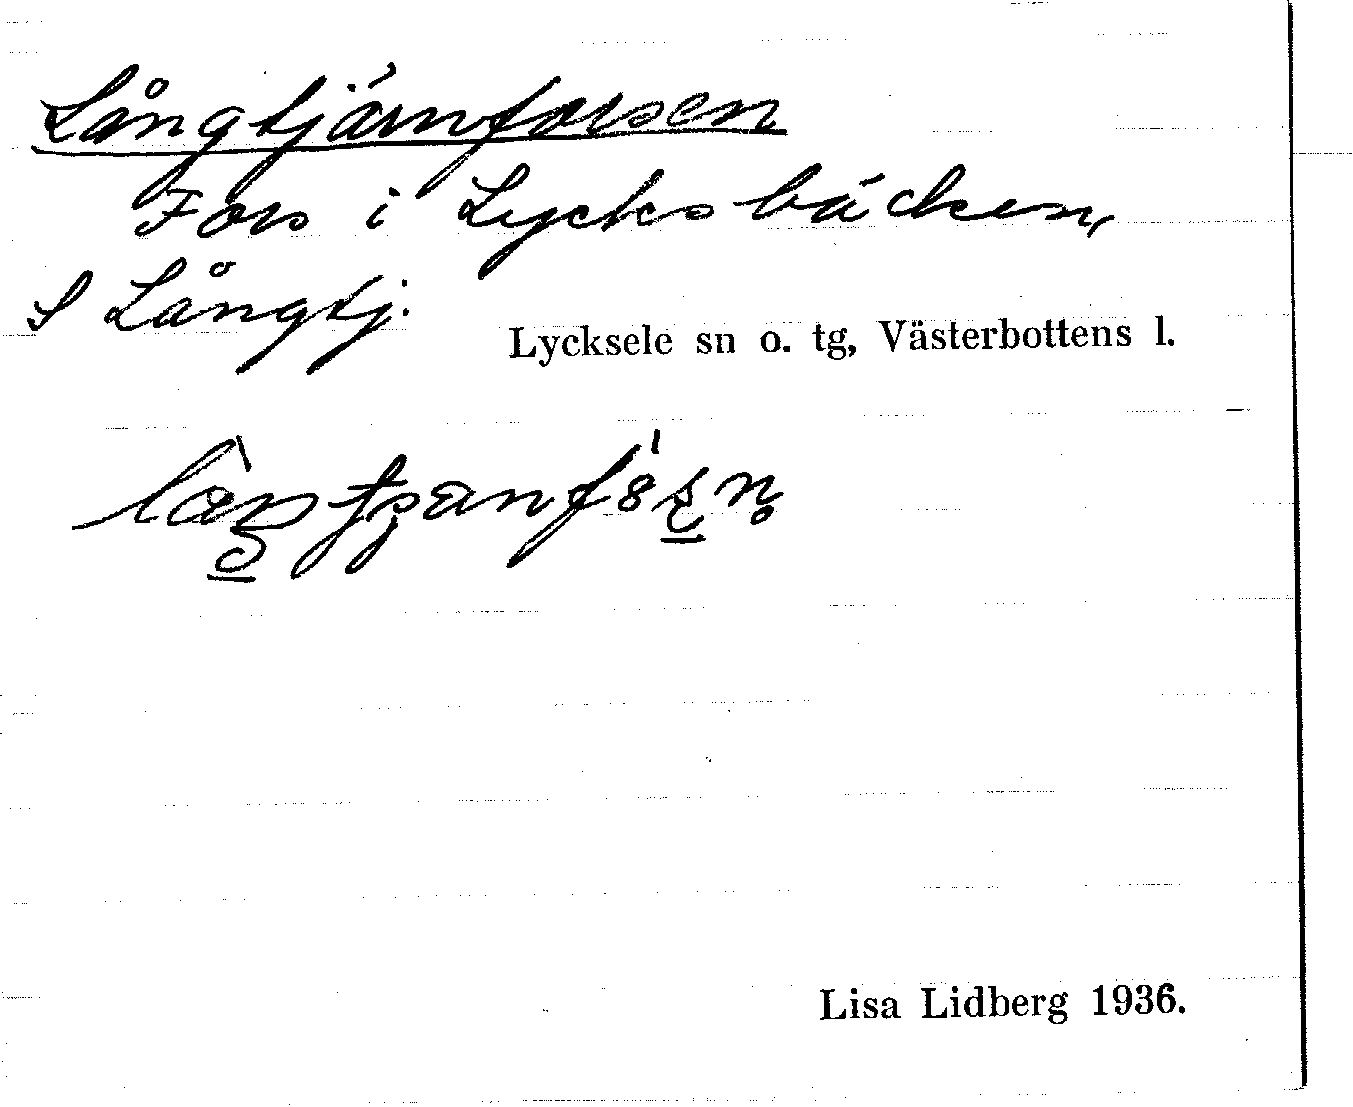 Långtjärnforsen
Fors i Lycksbäcken,
S Långtj.
Lycksele sn o. tg, Västerbottens l.
Lisa Lidberg 1936.